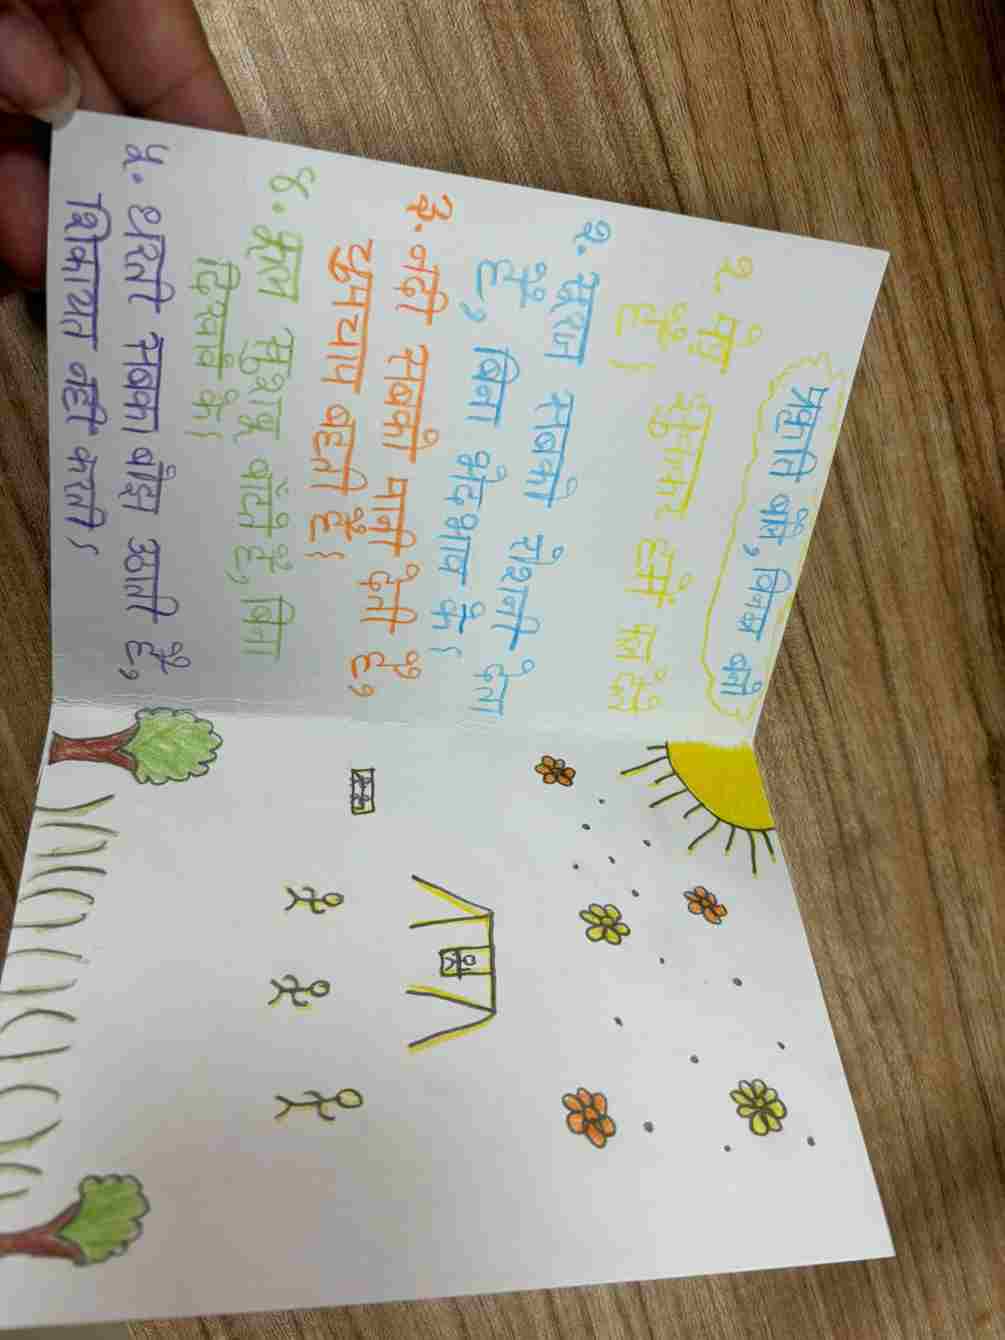 प्रकृति बने, विनम्र बनो
१. पेड़ झुककर हमें फल देते
हैं।
२. सूरज सबको रोशनी देता
है, बिना भेदभाव के।
३. नदी सबको पानी देती है,
चुपचाप बहती है।
४. फूल खुशबू बाँटते हैं, बिना
दिखावे के।
५. धरती सबका बोझ उठाती है,
शिकायत नहीं करती।